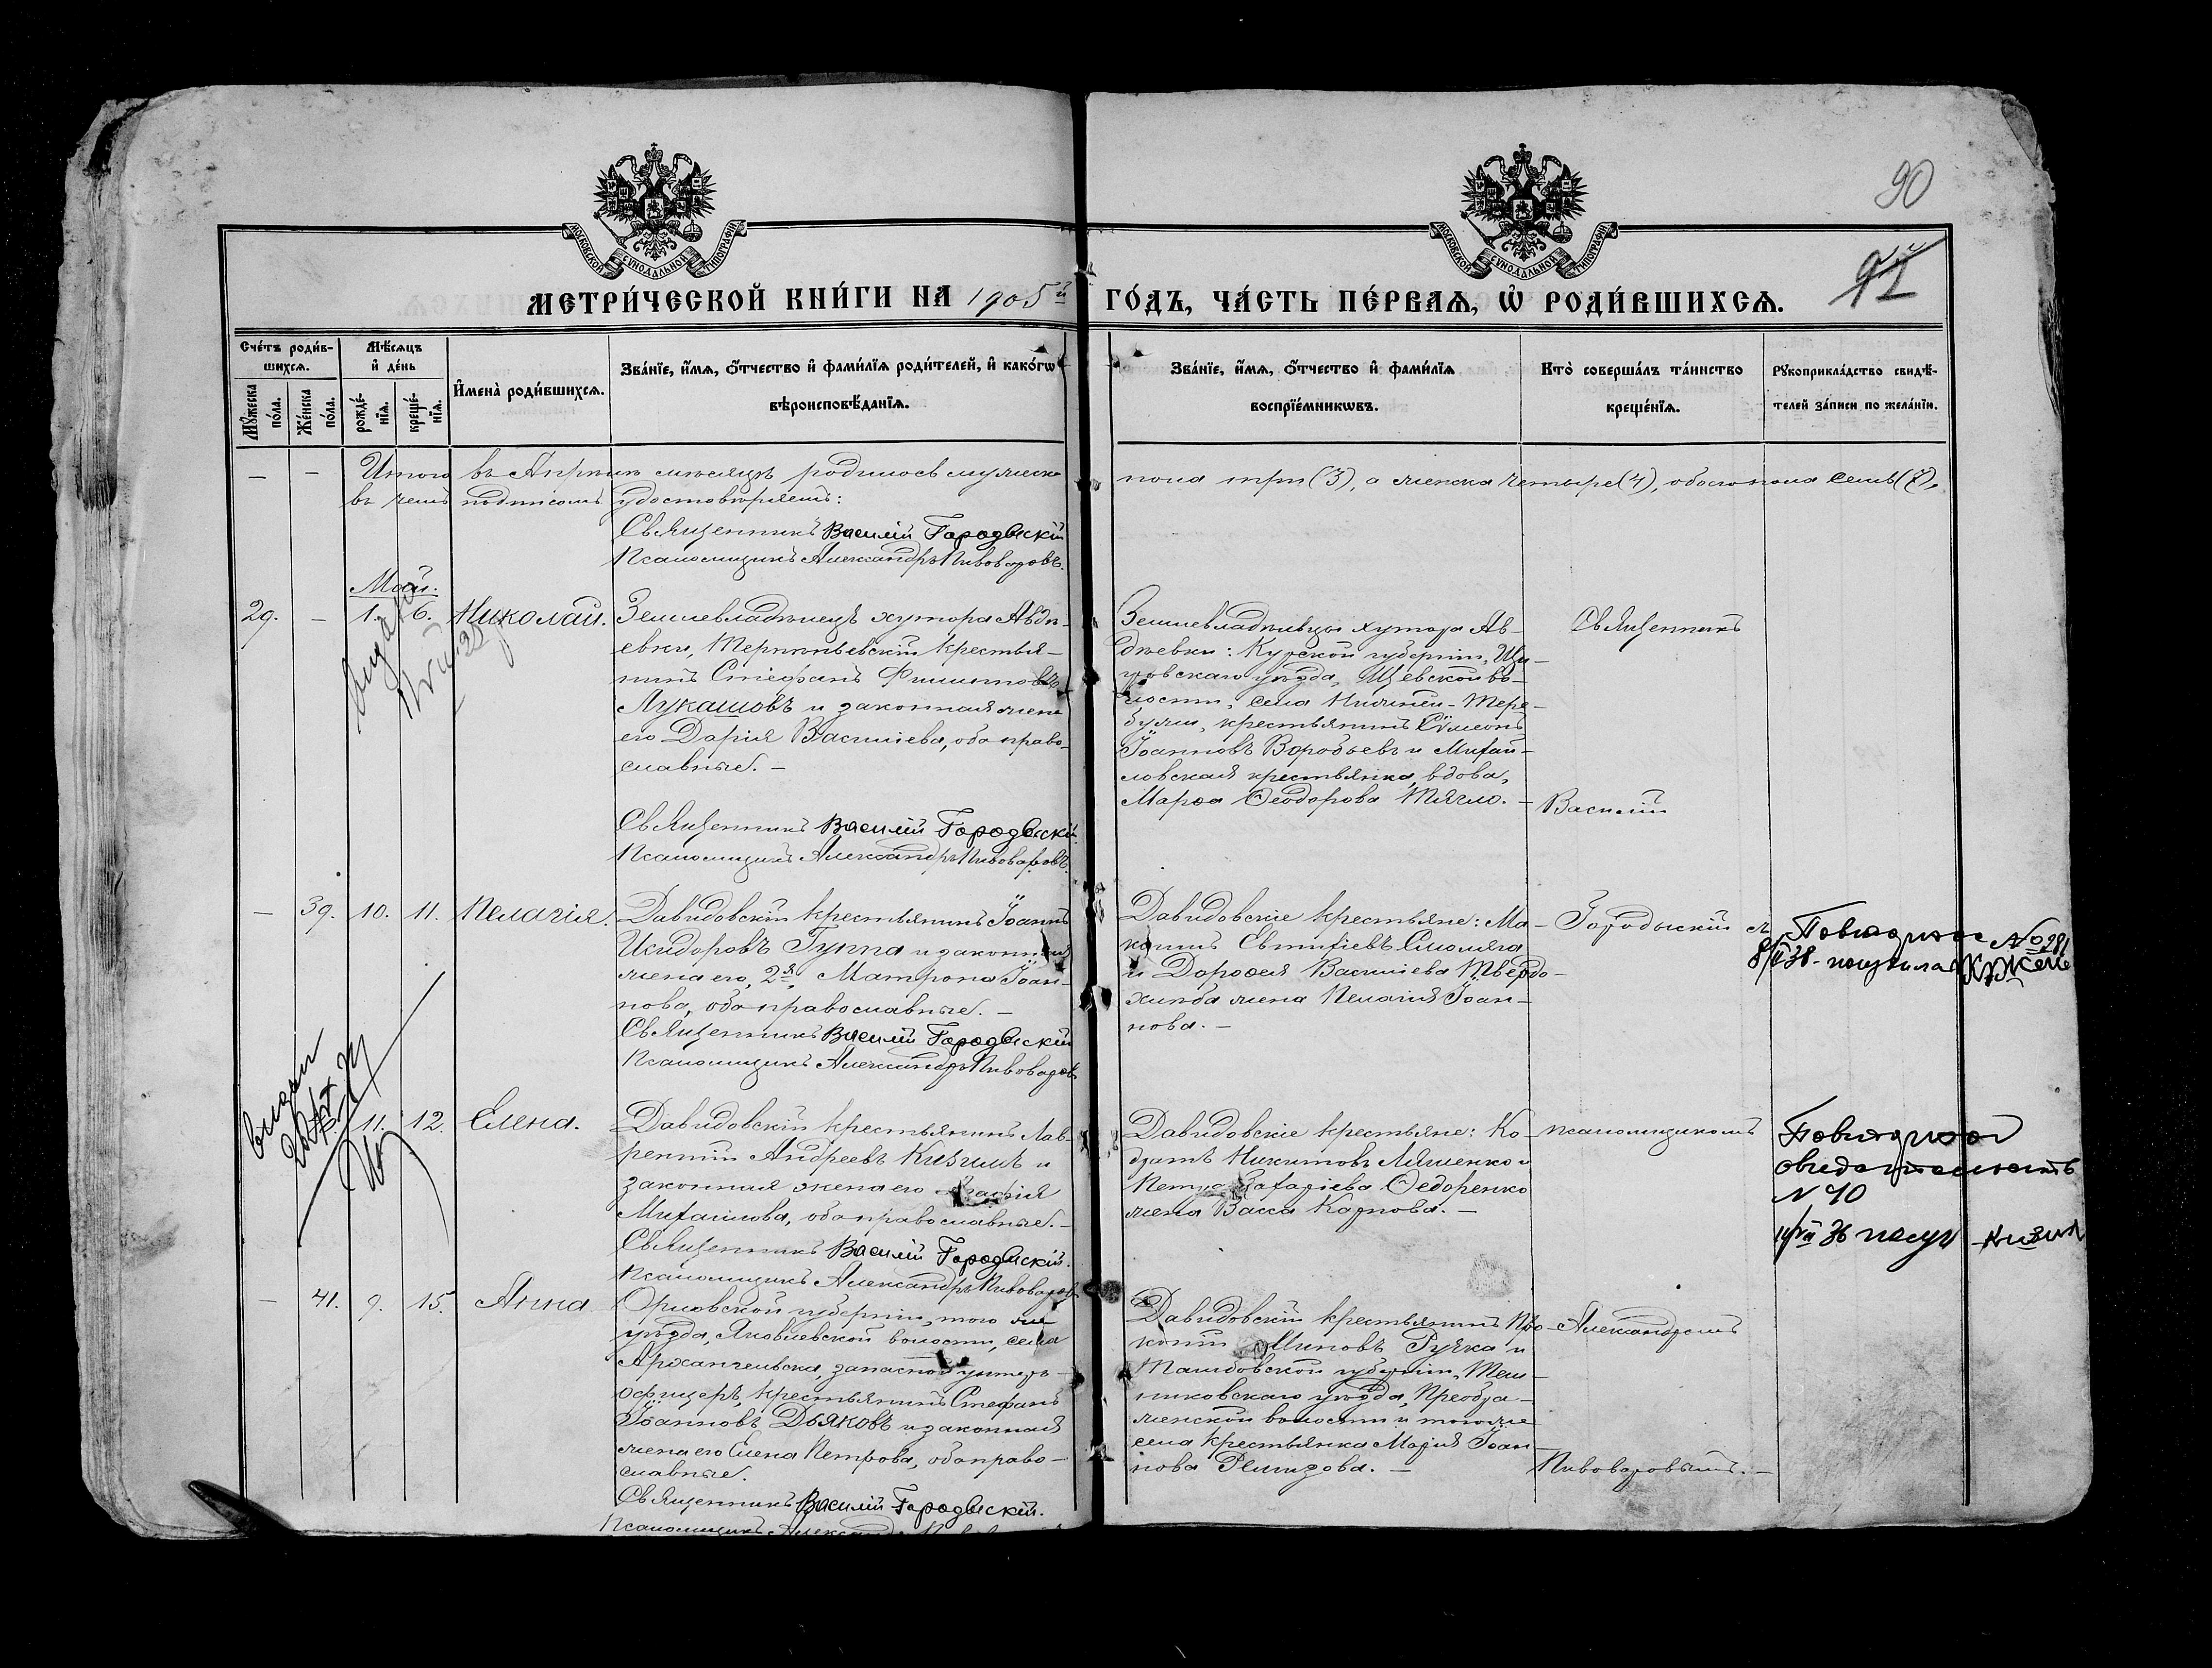 90
МОСКОВСКОЙ СѴНОДАЛЬНОЙ ТИПОГРАФІИ
МОСКОВСКОЙ СѴНОДАЛЬНОЙ ТИПОГРАФІИ
МЕТРИ́ЧЕСКОЙ КНИ́ГИ НА 1905й ГО́ДЪ, ЧА́СТЬ ПЕ́РВАЯ, Ѡ РОДИ́ВШИХСЯ.
Сче́тъ роди́в-
шихся.
Мѣ́сяцъ
и де́нь
Мꙋ́жеска
по́ла.
Же́нска
по́ла.
рожде́-
нїя.
креще́-
нїя.
Имена̀ роди́вшихся.
Зва́нїе, и́мя, ѻ́тчество и фами́лїя роди́телей, и како́гѡ
вѣроисповѣ́данїя.
Зва́нїе, и́мя, ѻ́тчество и фами́лїя
воспрїе́мникѡвъ.
Кто̀ соверша́лъ та́инство
креще́нїя.
Рꙋкоприкла́дство свидѣ́-
телей за́писи по жела́нїю.
— — Итого въ Апрѣлѣ мѣсяцѣ родилось мужеска
въ чемъ подписомъ удостовѣряемъ:
Священникъ Василій Городыскій
Псаломщикъ Александръ Пивоваровъ.
пола три (3), а женска четыре (4), обоего пола семь (7),
Май.
29. — 1. 6. Николай.
Землевладѣлецъ хутора Авдѣ-
евки, Терпѣньевскій крестья-
нинъ Стефанъ Филиповъ
Лукашовъ и законная жена
его Дарія Васильева, оба право-
славные. —
Священникъ Василій Городыскій
Псаломщикъ Александръ Пивоваровъ.
Землевладѣльцы хутора Ав-
дѣевки: Курской губерніи, Щи-
гровскаго уѣзда, волости, села
крестьянинъ Сѵмеонъ
Іоанновъ Воробьевъ и Михай-
ловская крестьянка, вдова,
Марѳа Ѳеодорова Тягло. —
Священникъ
Василій
— 39. 10. 11. Пелагія.
Давидовскій крестьянинъ Іоаннъ
Исидоровъ Гуппа и законная
жена его, 2я, Матрона Іоан-
нова, оба православные. —
Священникъ Василій Городыскій
Псаломщикъ Александръ Пивоваровъ
Давидовскіе крестьяне: Ма-
Евтихіевъ Смоляга
и Дороѳея Васильева Твердо-
хлѣба жена Пелагія Іоан-
нова. —
Городыскій съ
№ 281
11. 12. Елена.
Давидовскій крестьянинъ Лав-
рентій Андреевъ Кизимъ и
законная жена его
Михаилова, оба православные. —
Священникъ Василій Городыскій.
Псаломщикъ Александръ Пивоваровъ
Давидовскіе крестьяне: Ко-
дратъ Никитовъ Ляшенко и
Петра Захаріева Ѳедоренко
жена Васса Карпова. —
псаломщикомъ
N 40
— 41. 9. 15. Анна
Орловской губерніи, того же
уѣзда, Яковлевской волости, села
Архангельска, запасной унтеръ-
офицеръ, крестьянинъ Стефанъ
Іоанновъ Дьяковъ и законная
жена его Елена Петрова, оба право-
славные.
Священникъ Василій Городыскій.
Давидовскій крестьянинъ Про-
копій Миновъ Ручка и
Тамбовской губерніи, Тем-
никовскаго уѣзда, Преобра-
женской волости и того же
села крестьянка Марія Іоан-
нова
Александромъ
Пивоваровымъ. —